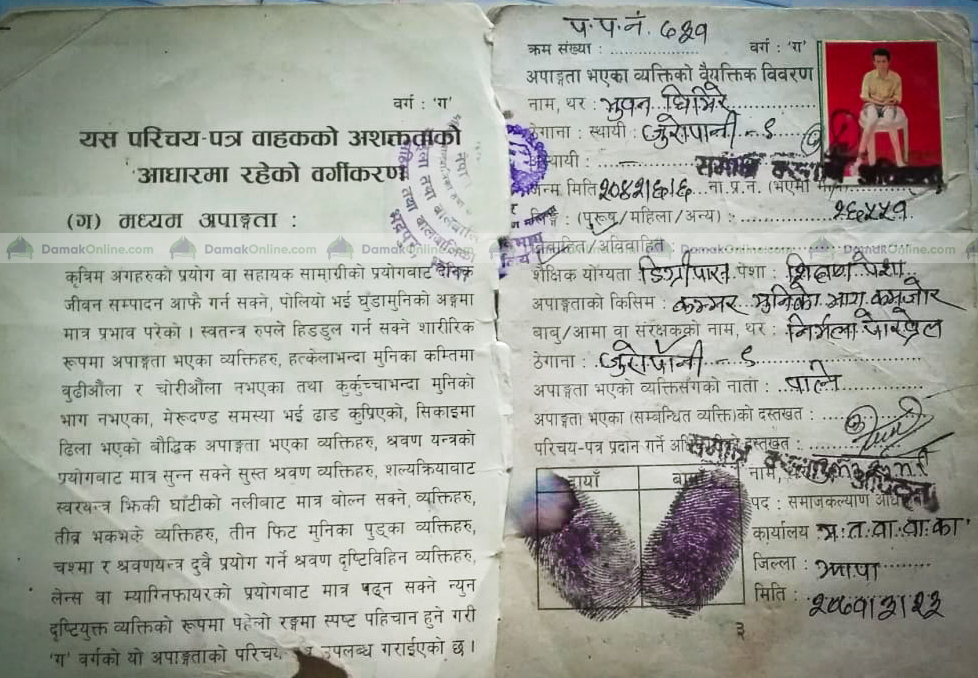 वर्ग : 'ग'
यस परिचय-पत्र वाहकको अशक्तताको
आधारमा रहेको वर्गीकरण
(ग) मध्यम अपाङ्गता :
DamakOnline.com DamakOnline.com DamakOnline.com DamakOnline.com DamakOnline.com
कृत्रिम अंगहरुको प्रयोग वा सहायक सामाग्रीको प्रयोगबाट दैनिक
जीवन सम्पादन आफै गर्न सक्ने, पोलियो भई घुंडामुनिको अङ्गमा
मात्र प्रभाव परेको । स्वतन्त्र रुपले हिडडुल गर्न सक्ने शारीरिक
रूपमा अपाङ्गता भएका व्यक्तिहरु, हत्केलाभन्दा मुनिका कम्तिमा
बुढीऔंला र चोरीऔंला नभएका तथा कुर्कुच्चाभन्दा मुनिको
भाग नभएका, मेरूदण्ड समस्या भई ढाड कुप्रिएको, सिकाइमा
ढिला भएको बौद्धिक अपाङ्गता भएका व्यक्तिहरु, श्रवण यन्त्रको
प्रयोगबाट मात्र सुन्न सक्ने सुस्त श्रवण व्यक्तिहरु, शल्यक्रियाबाट
स्वरयन्त्र झिकी घाँटीको नलीबाट मात्र बोल्न सक्ने, व्यक्तिहरु,
तीव्र भकभके व्यक्तिहरु, तीन फिट मुनिका पुड्का व्यक्तिहरु,
चश्मा र श्रवणयन्त्र दुवै प्रयोग गर्ने श्रवण दृष्टिविहिन व्यक्तिहरु,
लेन्स वा म्याग्निफायरको प्रयोगबाट मात्र पढ्न सक्ने न्युन
दृष्टियुक्त व्यक्तिको रूपमा पहेलो रङ्गमा स्पष्ट पहिचान हुने गरी
'ग' वर्गको यो अपाङ्गताको परिचय उपलब्ध गराईएको छ ।
प.प.नं. ७३१
क्रम संख्या : वर्ग : 'ग'
अपाङ्गता भएका व्यक्तिको वैयक्तिक विवरण
नाम, थर : भुवन घिमिरे
ठेगाना : स्थायी : जुरोपानी - ९
अस्थायी : —
जन्म मिति २०४२।६।६ ना.प्र.नं. (भएमा
२६५५१
(पुरूष/महिला/अन्य) :
विवाहित/अविवाहित :
शैक्षिक योग्यता डिग्रीपास पेशा : शिक्षण पेशा
अपाङ्गताको किसिम : कम्मर मुनिको भाग कमजोर
बाबु/आमा वा संरक्षकको नाम, थर : निर्मला पोख्रेल
ठेगाना : जुरोपानी - ९
अपाङ्गता भएको व्यक्तिसँगको नाता :
अपाङ्गता भएका (सम्बन्धित व्यक्ति)को दस्तखत :
परिचय-पत्र प्रदान गर्ने दस्तखत :
दायाँ नाम,
पद : समाजकल्याण
कार्यालय म.त.वा.वा.का
जिल्ला : झापा
मिति : २०७१।३।२३
३